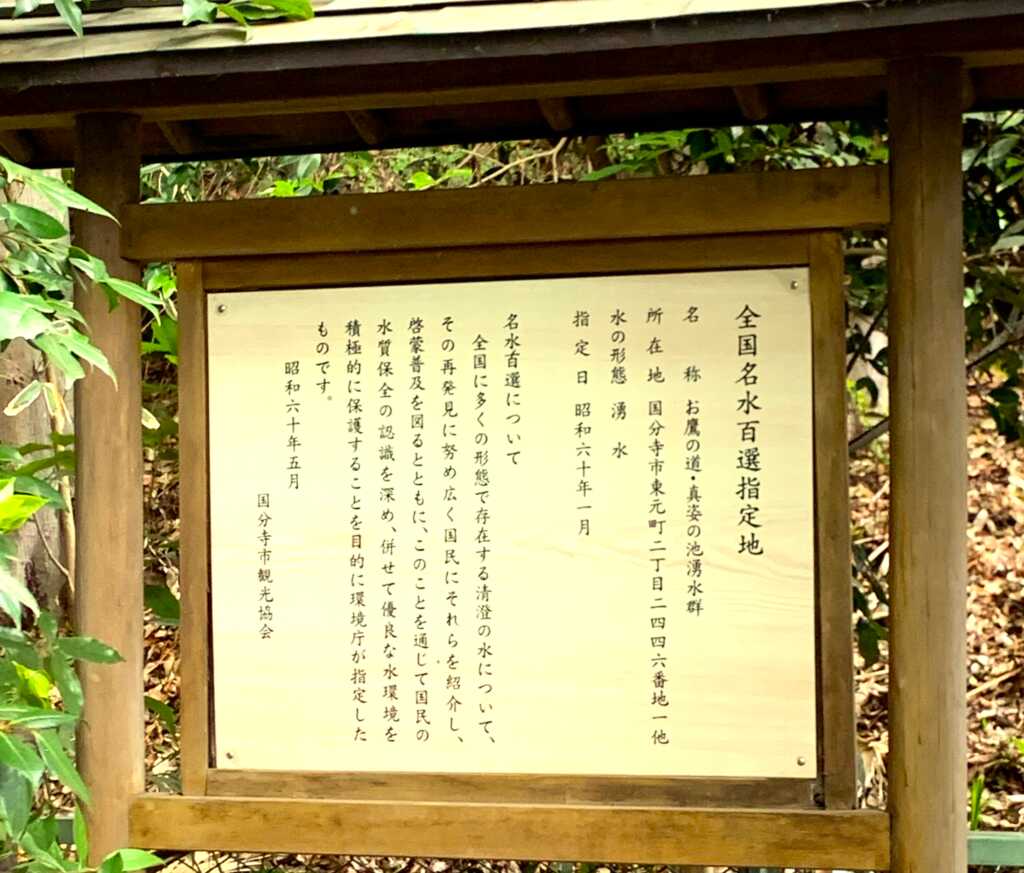 全国名水百選指定地
名　称　お鷹の道・真姿の池湧水群
所在地　国分寺市東元町二丁目二四四六番地一他
水の形態　湧　水
指定日　昭和六十年一月
名水百選について
全国に多くの形態で存在する清澄の水について、
その再発見に努め広く国民にそれらを紹介し、
啓蒙普及を図るとともに、このことを通じて国民の
水質保全の認識を深め、併せて優良な水環境を
積極的に保護することを目的に環境庁が指定した
ものです。
昭和六十年五月
国分寺市観光協会